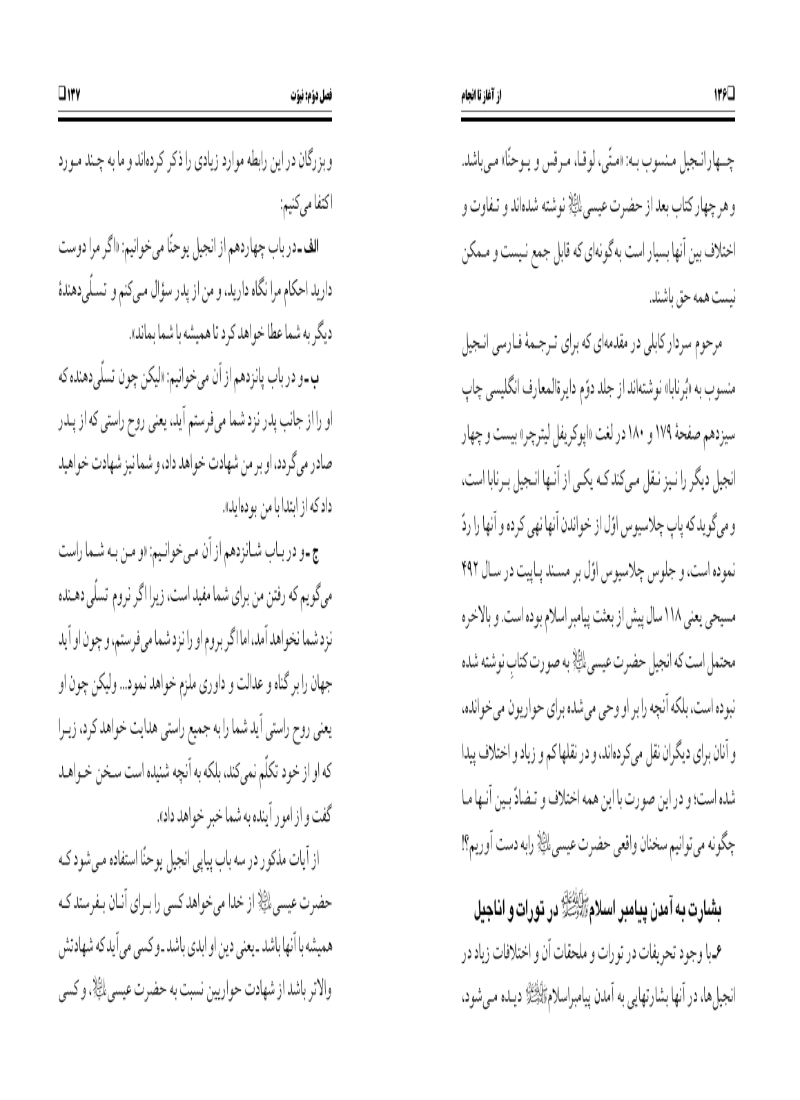 ❏۱۳۶ از آغاز تا انجام
چـهار انـجیل مـنسوب بـه: «متّی، لوقـا، مـرقس و یـوحنّا» مـی‌باشد.
و هر چهار کتاب بعد از حضرت عیسی﷼ نوشته شده‌اند و تـفاوت و
اختلاف بین آنها بسیار است به‌گونه‌ای که قابل جمع نـیست و مـمکن
نیست همه حق باشند.
مرحوم سردار کابلی در مقدمه‌ای که برای تـرجـمۀ فـارسی انـجیل
منسوب به «بُرنابا» نوشته‌اند از جلد دوّم دایرةالمعارف انگلیسی چاپ
سیزدهم صفحۀ ۱۷۹ و ۱۸۰ در لغت «اپوکریفل لیترچر» بیست و چهار
انجیل دیگر را نـیز نـقل مـی‌کند کـه یکـی از آنـها انـجیل بـرنابا است،
و می‌گوید که پاپ چلاسیوس اوّل از خواندن آنها نهی کرده و آنها را ردّ
نموده است، و جلوس چلاسیوس اوّل بر مسند پـاپیت در سـال ۴۹۲
مسیحی یعنی ۱۱۸ سال پیش از بعثت پیامبر اسلام بوده است. و بالاخره
محتمل است که انجیل حضرت عیسی به صورت کتابِ نوشته شده
نبوده است، بلکه آنچه را بر او وحی می‌شده برای حواریون می‌خوانده،
و آنان برای دیگران نقل می‌کرده‌اند، و در نقلها کم و زیاد و اختلاف پیدا
شده است؛ و در این صورت با این همه اختلاف و تـضادّ بـین آنـها مـا
چگونه می‌توانیم سخنان واقعی حضرت عیسی رابه دست آوریم؟!
بشارت به آمدن پیامبر اسلامﷺ در تورات و اناجیل
۶ـ با وجود تحریفات در تورات و ملحقات آن و اختلافات زیاد در
انجیل‌ها، در آنها بشارتهایی به آمدن پیامبراسلامﷺ دیـده مـی‌شود،
فصل دوّم: نبوّت ۱۳۷❏
و بزرگان در این رابطه موارد زیادی را ذکر کرده‌اند و ما به چـند مـورد
اکتفا می‌کنیم:
الف ـ در باب چهاردهم از انجیل یوحنّا می‌خوانیم: «اگر مرا دوست
دارید احکام مرا نگاه دارید، و من از پدر سؤال مـی‌کنم و تسـلّی‌دهندۀ
دیگر به شما عطا خواهد کرد تا همیشه با شما بماند».
ب ـ و در باب پانزدهم از آن می‌خوانیم: «لیکن چون تسلّی‌دهنده که
او را از جانب پدر نزد شما می‌فرستم آید، یعنی روح راستی که از پـدر
صادر می‌گردد، او بر من شهادت خواهد داد، و شما نیز شهادت خواهید
داد که از ابتدا با من بوده‌اید».
ج ـ و در بـاب شـانزدهم از آن مـی‌خوانـیم: «و مـن بـه شـما راست
می‌گویم که رفتن من برای شما مفید است، زیرا اگر نروم تسلّی‌دهـنده
نزد شما نخواهد آمد، اما اگر بروم او را نزد شما می‌فرستم، و چون او آید
جهان را بر گناه و عدالت و داوری ملزم خواهد نمود... ولیکن چون او
یعنی روح راستی آید شما را به جمیع راستی هدایت خواهد کرد، زیـرا
که او از خود تکلّم نمی‌کند، بلکه به آنچه شنیده است سـخن خـواهـد
گفت و از امور آینده به شما خبر خواهد داد».
از آیات مذکور در سه باب پیاپی انجیل یوحنّا استفاده مـی‌شود کـه
حضرت عیسی از خدا می‌خواهد کسی را بـرای آنـان بـفرستد کـه
همیشه با آنها باشد ـ یعنی دین او ابدی باشد ـ و کسی می‌آید که شهادتش
والاتر باشد از شهادت حواریین نسبت به حضرت عیسی، و کسی